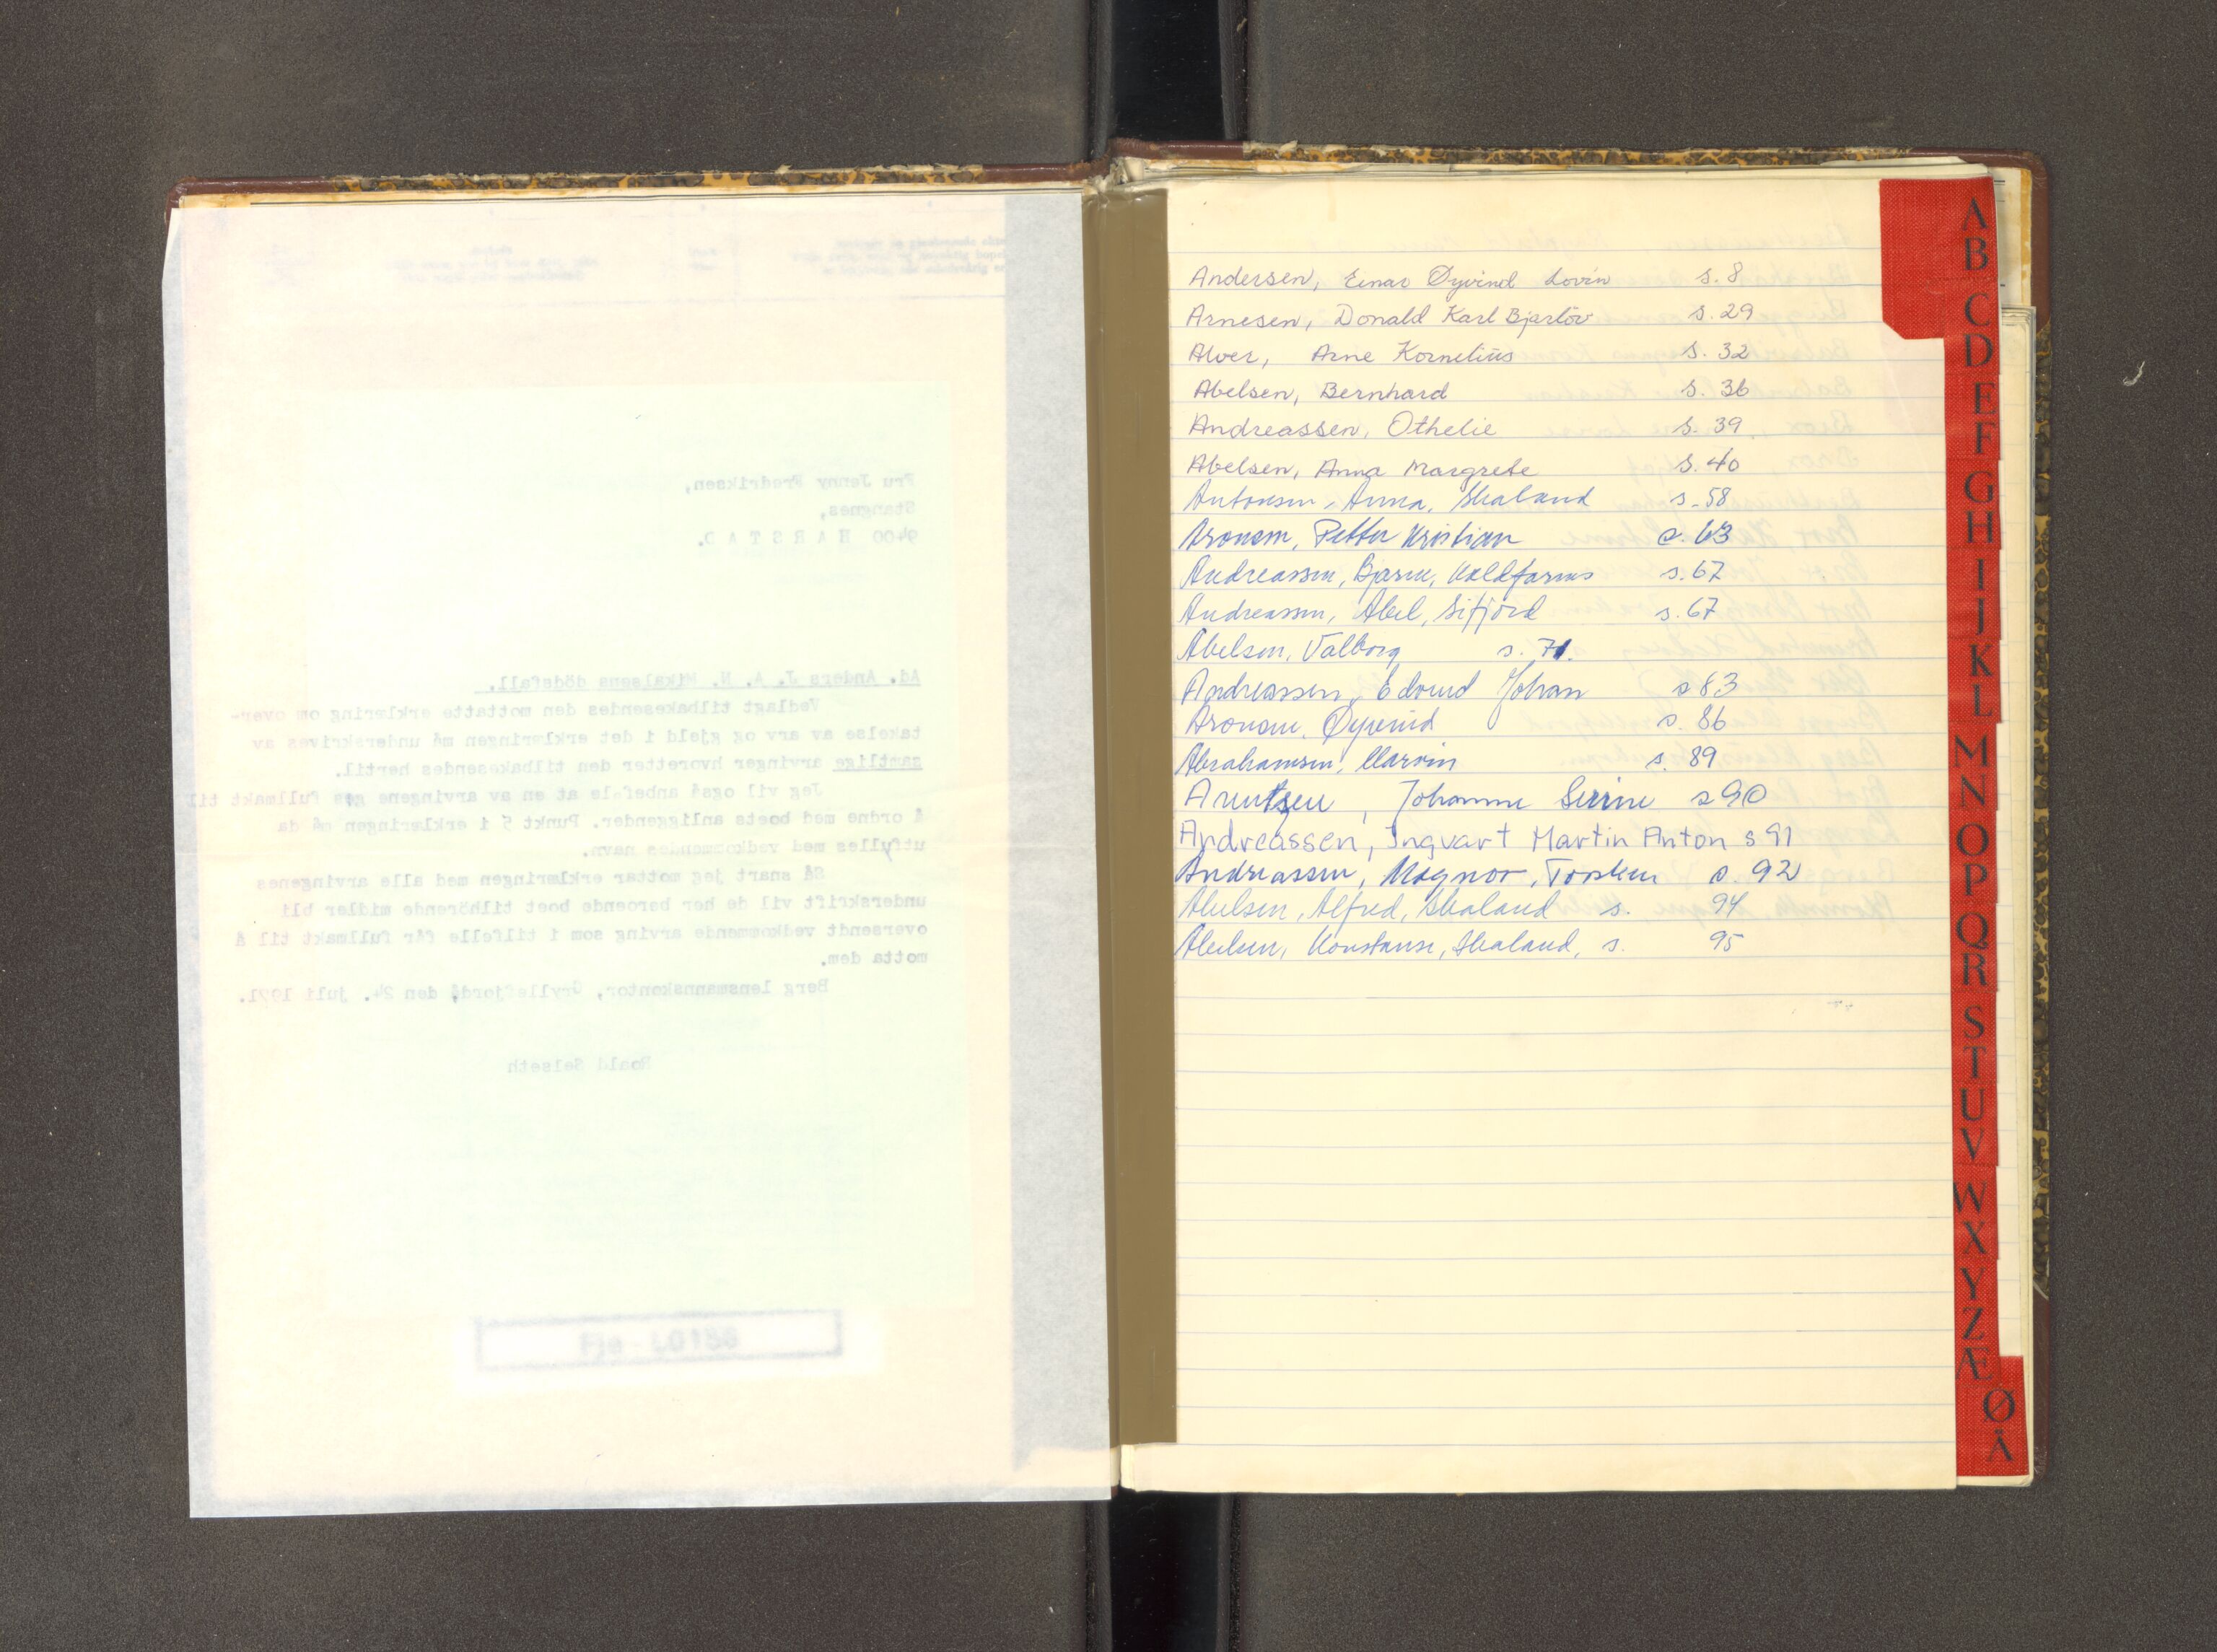 Fru Jenny Fredriksen,
Stangnes,
9400 HARSTAD.
Ad. Anders J. A. N. Mikalsens dödsfall.
Vedlagt tilbakesendes den mottatte erklæring om over-
takelse av arv og gjeld i det erklæringen må underskrives av
samtlige arvinger hvoretter den tilbakesendes hertil.
Jeg vil også anbefale at en av arvingene gis fullmakt til
å ordne med boets anliggender. Punkt 5 i erklæringen må da
utfylles med vedkommendes navn.
Så snart jeg mottar erklæringen med alle arvingenes
underskrift vil de her beroende boet tilhörende midler bli
oversendt vedkommende arving som i tilfelle får fullmakt til å
motta dem.
Berg lensmannskontor, Gryllefjord, den 24. juli 1971.
Roald Selseth
Fje - L0156
Andersen, Einar Øyvind Lovin s. 8
Arnesen, Donald Karl Bjarlöv s. 29
Alver, Arne Kornelius s. 32
Abelsen, Bernhard s. 36
Andreassen, Othelie s. 39
Abelsen, Anna Margrete s. 40
Antonsen, Anna, Skaland s. 58
Aronsen, Petter Kristian s. 63
Andreassen, Bjarne, Kaldfarnes s. 67
Andreassen, Abel, Sifjord s. 67
Abelsen, Valborg s. 71.
Andreassen, Edvind Johan s 83
Aronsen, Øyvind s. 86
Abrahamsen, Marvin s. 89
Arntzen, Johanne Serine s 90
Andreassen, Ingvart Martin Anton s 91
Andreassen, Magnor, Torsken s. 92
Abelsen, Alfred, Skaland s. 94
Abelsen, Konstanse, Skaland, s. 95
A
B
C
D
E
F
G
H
I
J
K
L
M
N
O
P
Q
R
S
T
U
V
W
X
Y
Z
Æ
Ø
Å